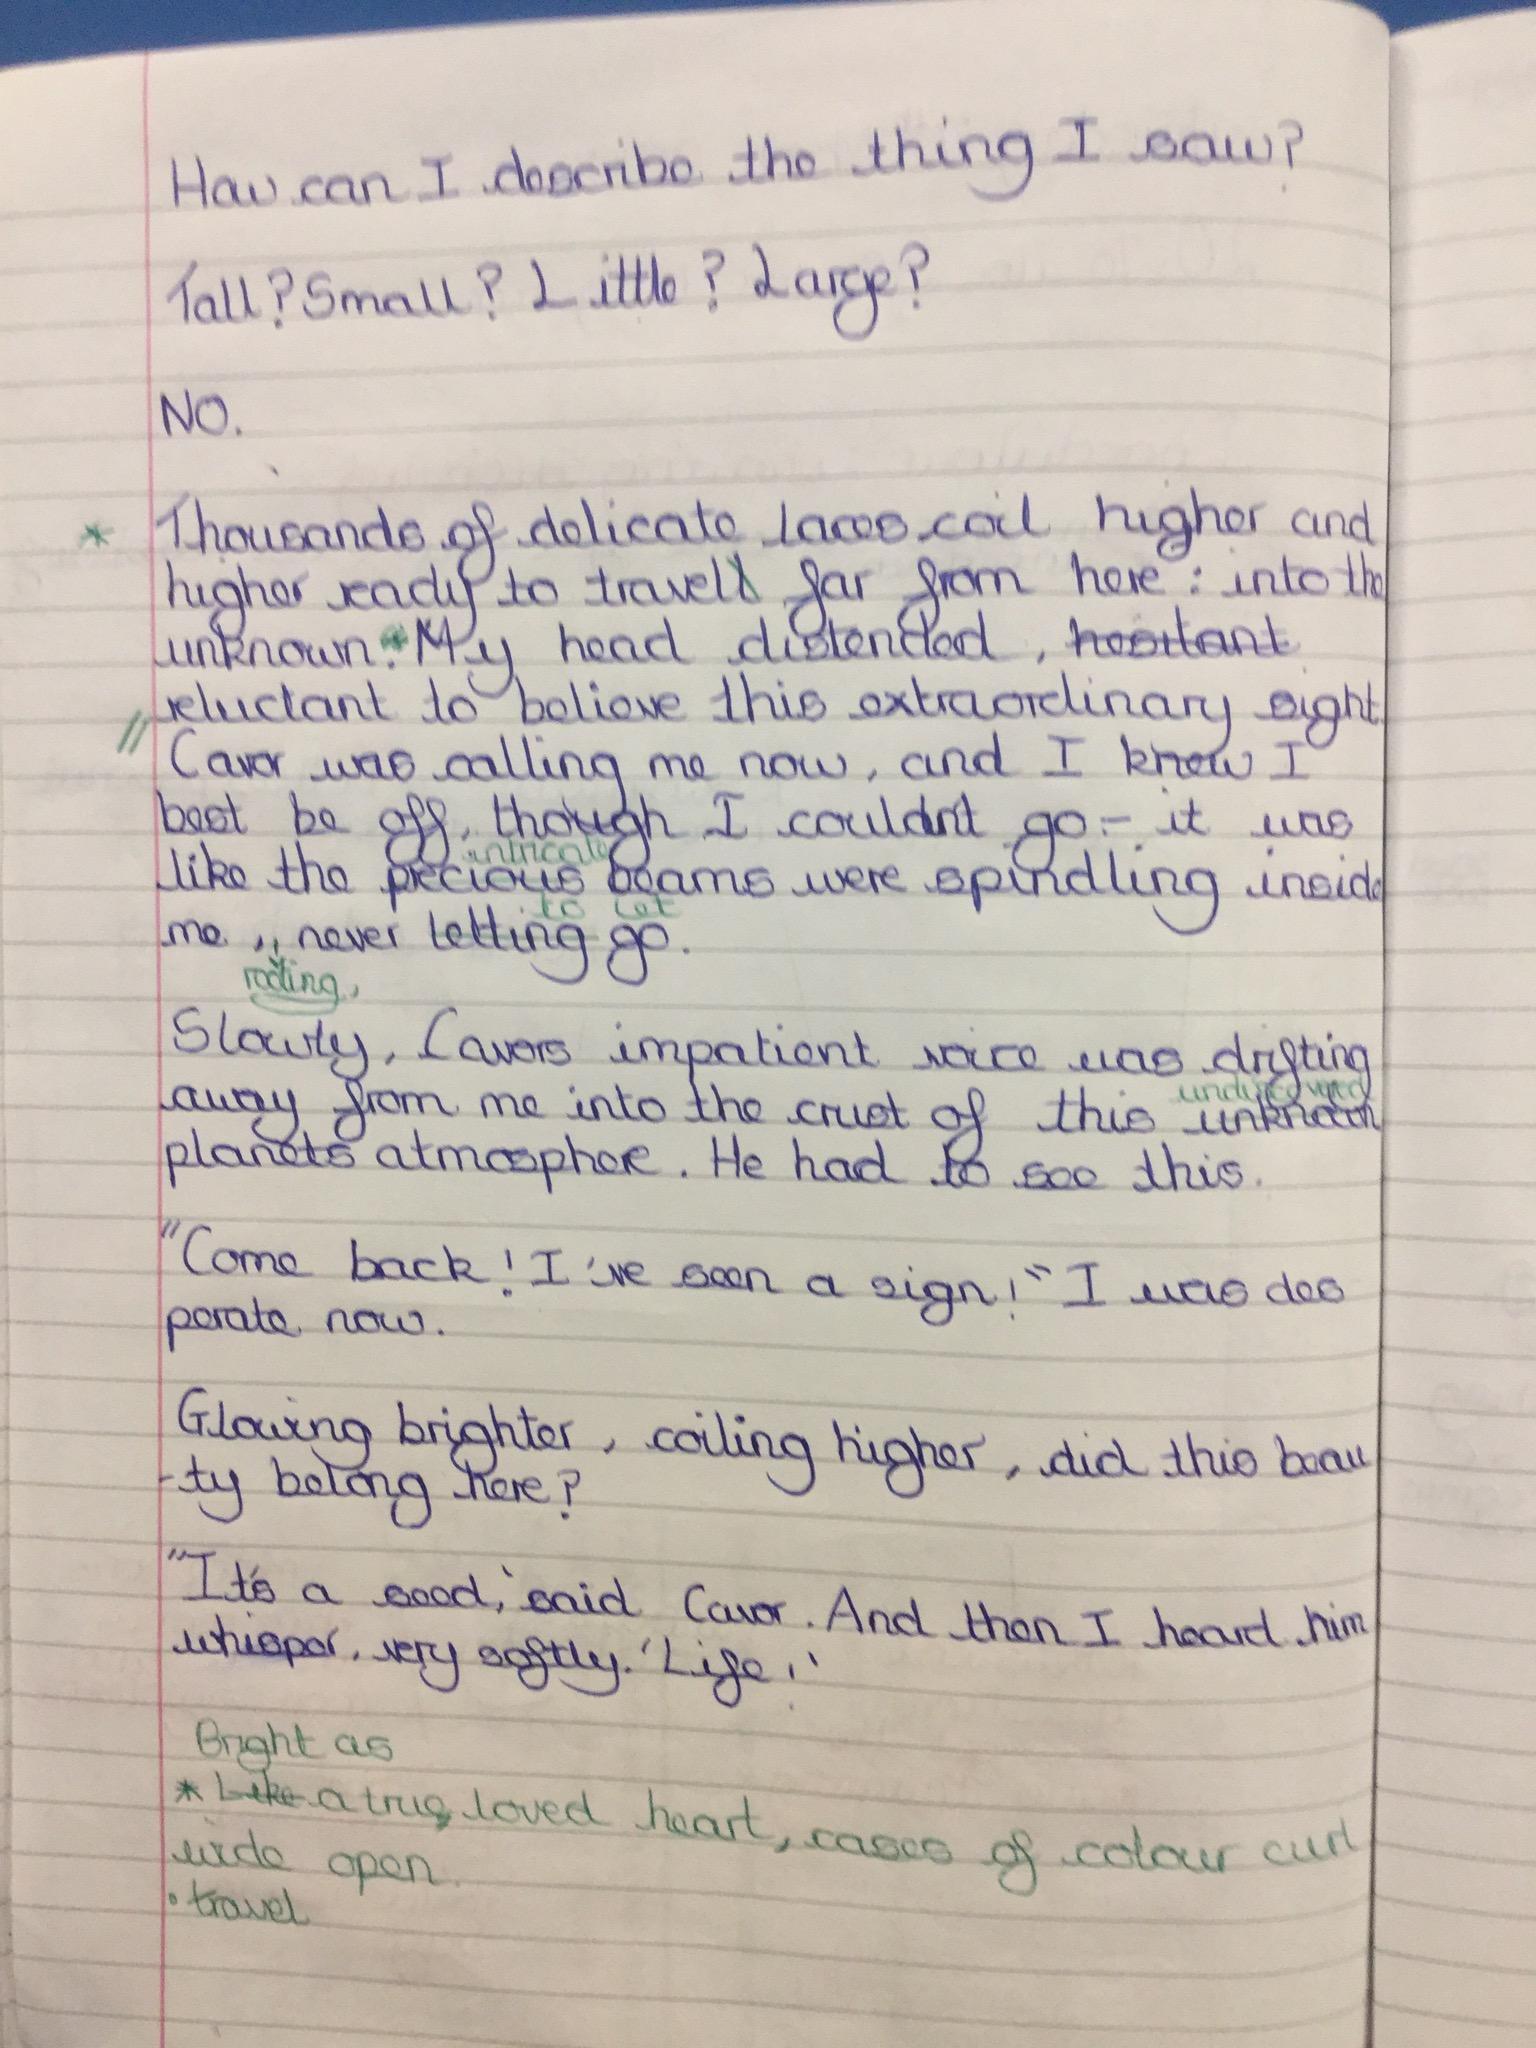 How can I describe the thing I saw?
Tall? Small? Little? Large?
NO.
* Thousands of delicate laces coil higher and
higher ready to travell far from here : into the
unknown.* My head distended, hesitant
reluctant to believe this extraordinary sight.
// Cavor was calling me now, and I knew I
best be off, though I couldn't go - it was
intricate
like the precious beams were spindling inside
to let
me, never letting go.
rooting,
Slowly, Cavors impatient voice was drifting
undiscovered
away from me into the crust of this unknown
planets atmosphere. He had to see this.
"Come back! I've seen a sign!" I was des
perate now.
Glowing brighter, coiling higher, did this beau
-ty belong here?
"It's a seed,' said Cavor. And then I heard him
whisper, very softly. 'Life!'
Bright as
* Like a true loved heart, cases of colour curl
wide open.
• travel